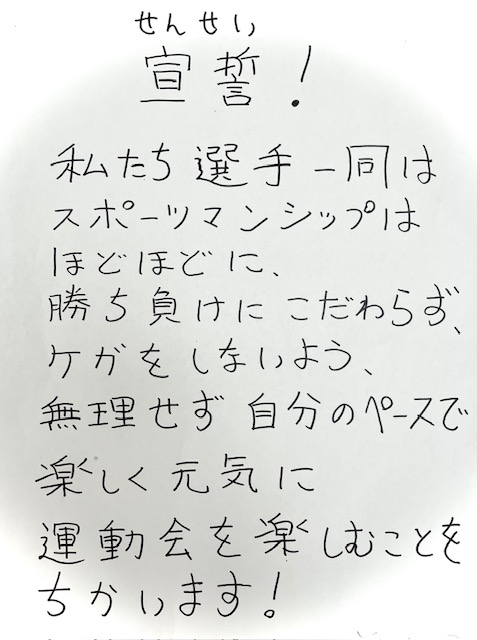 せんせい
宣誓！
私たち選手一同は
スポーツマンシップは
ほどほどに、
勝ち負けにこだわらず、
ケガをしないよう、
無理せず自分のペースで
楽しく元気に
運動会を楽しむことを
ちかいます！